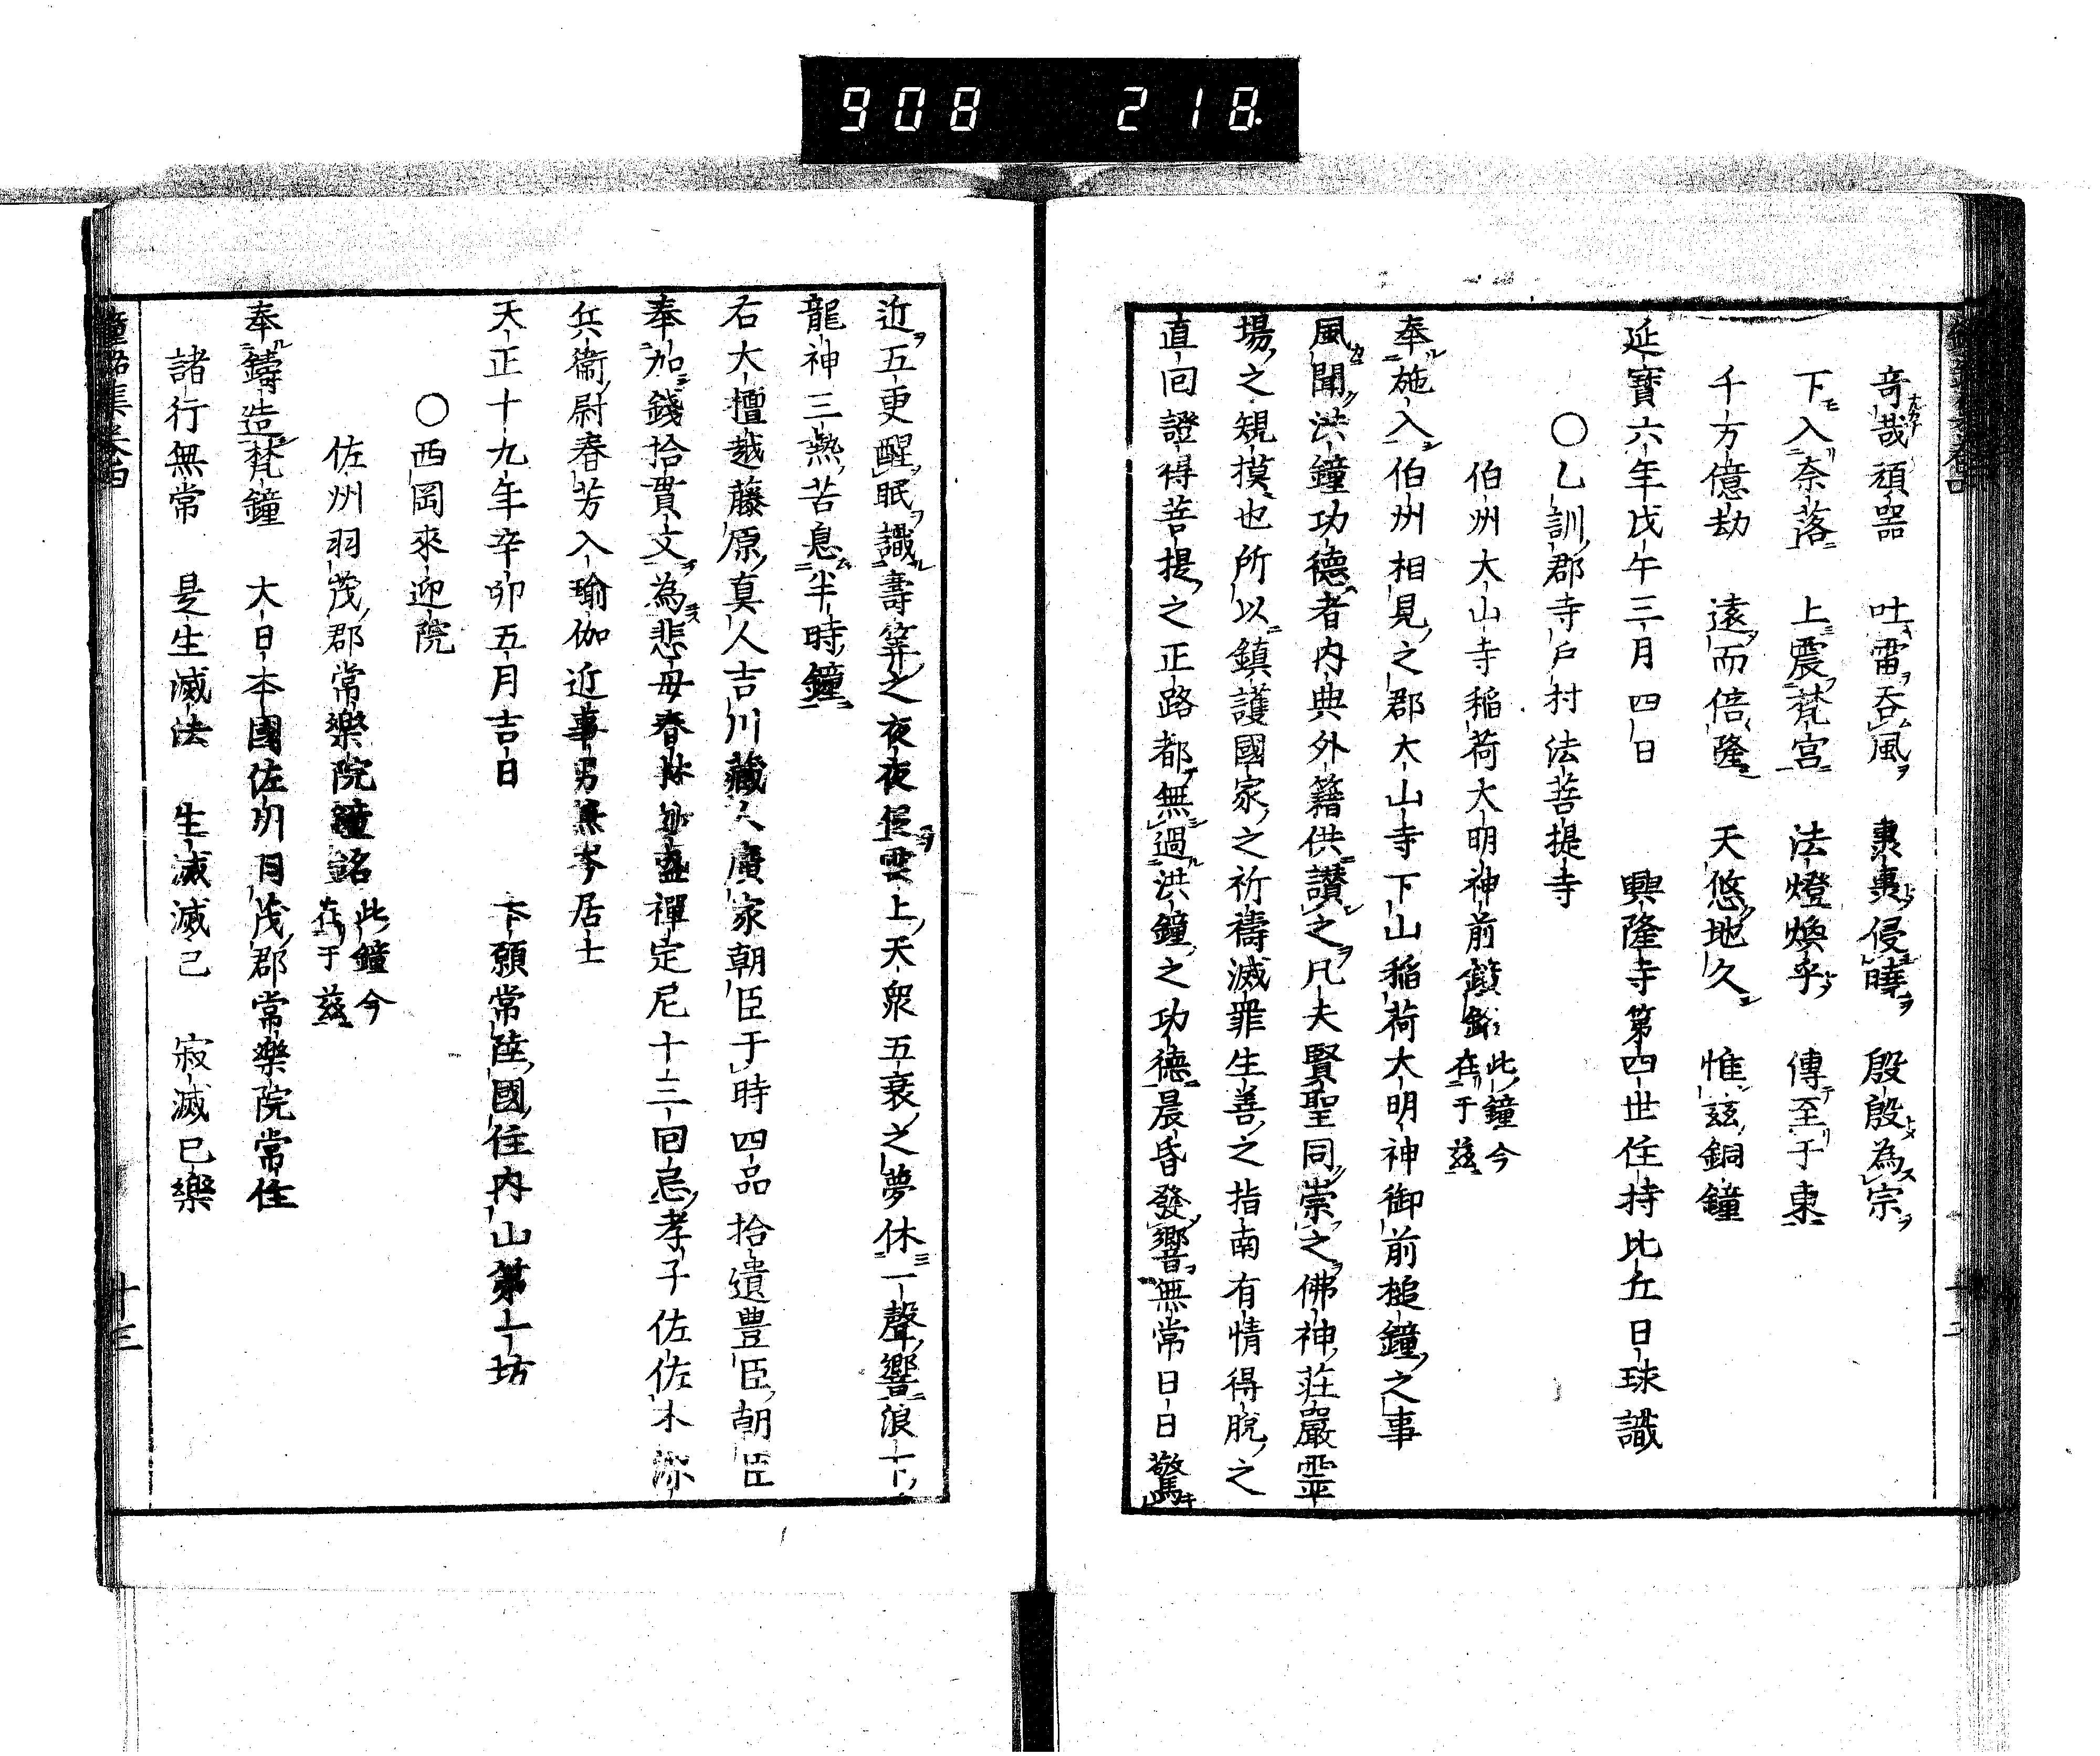 908 218
奇哉頑器 吐雷吞風 裊裊侵曉 殷殷為宗
下入奈落 上震梵宮 法燈煥乎 傳至于東
千方億劫 遠而倍隆 天悠地久 惟茲銅鐘
延寶六年戊午三月四日 興隆寺第四世住持比丘日球識
○乙訓郡寺戶村法菩提寺
伯州大山寺稲荷大明神前鐘銘 此鐘今在于茲
奉施入伯州相見之郡大山寺下山稲荷大明神御前槌鐘之事
風聞洪鐘功德者内典外籍供讃之凡夫賢聖同崇之佛神荘嚴霊
場之規摸也所以鎮護國家之祈禱滅罪生善之指南有情得脱之
直回證得菩提之正路都無過洪鐘之功德晨昏發響無常日日驚
近五更醒眠識壽筭之夜夜促雲上天衆五衰之夢休一聲響浪下
龍神三熱苦息半時鐘
右大檀越藤原真人吉川藏人廣家朝臣于時四品拾遺豊臣朝臣
奉加錢拾貫文為悲母春林妙盛禪定尼十三回忌孝子佐佐木
兵衞尉春芳入瑜伽近事男無岑居士
天正十九年辛卯五月吉日 本願常陸國住内山第一坊
○西岡來迎院
佐州羽茂郡常樂院鐘銘 此鐘今在于茲
奉鑄造梵鐘 大日本國佐州羽茂郡常樂院常住
諸行無常 是生滅法 生滅滅己 寂滅已樂
鐘銘集卷四 十三